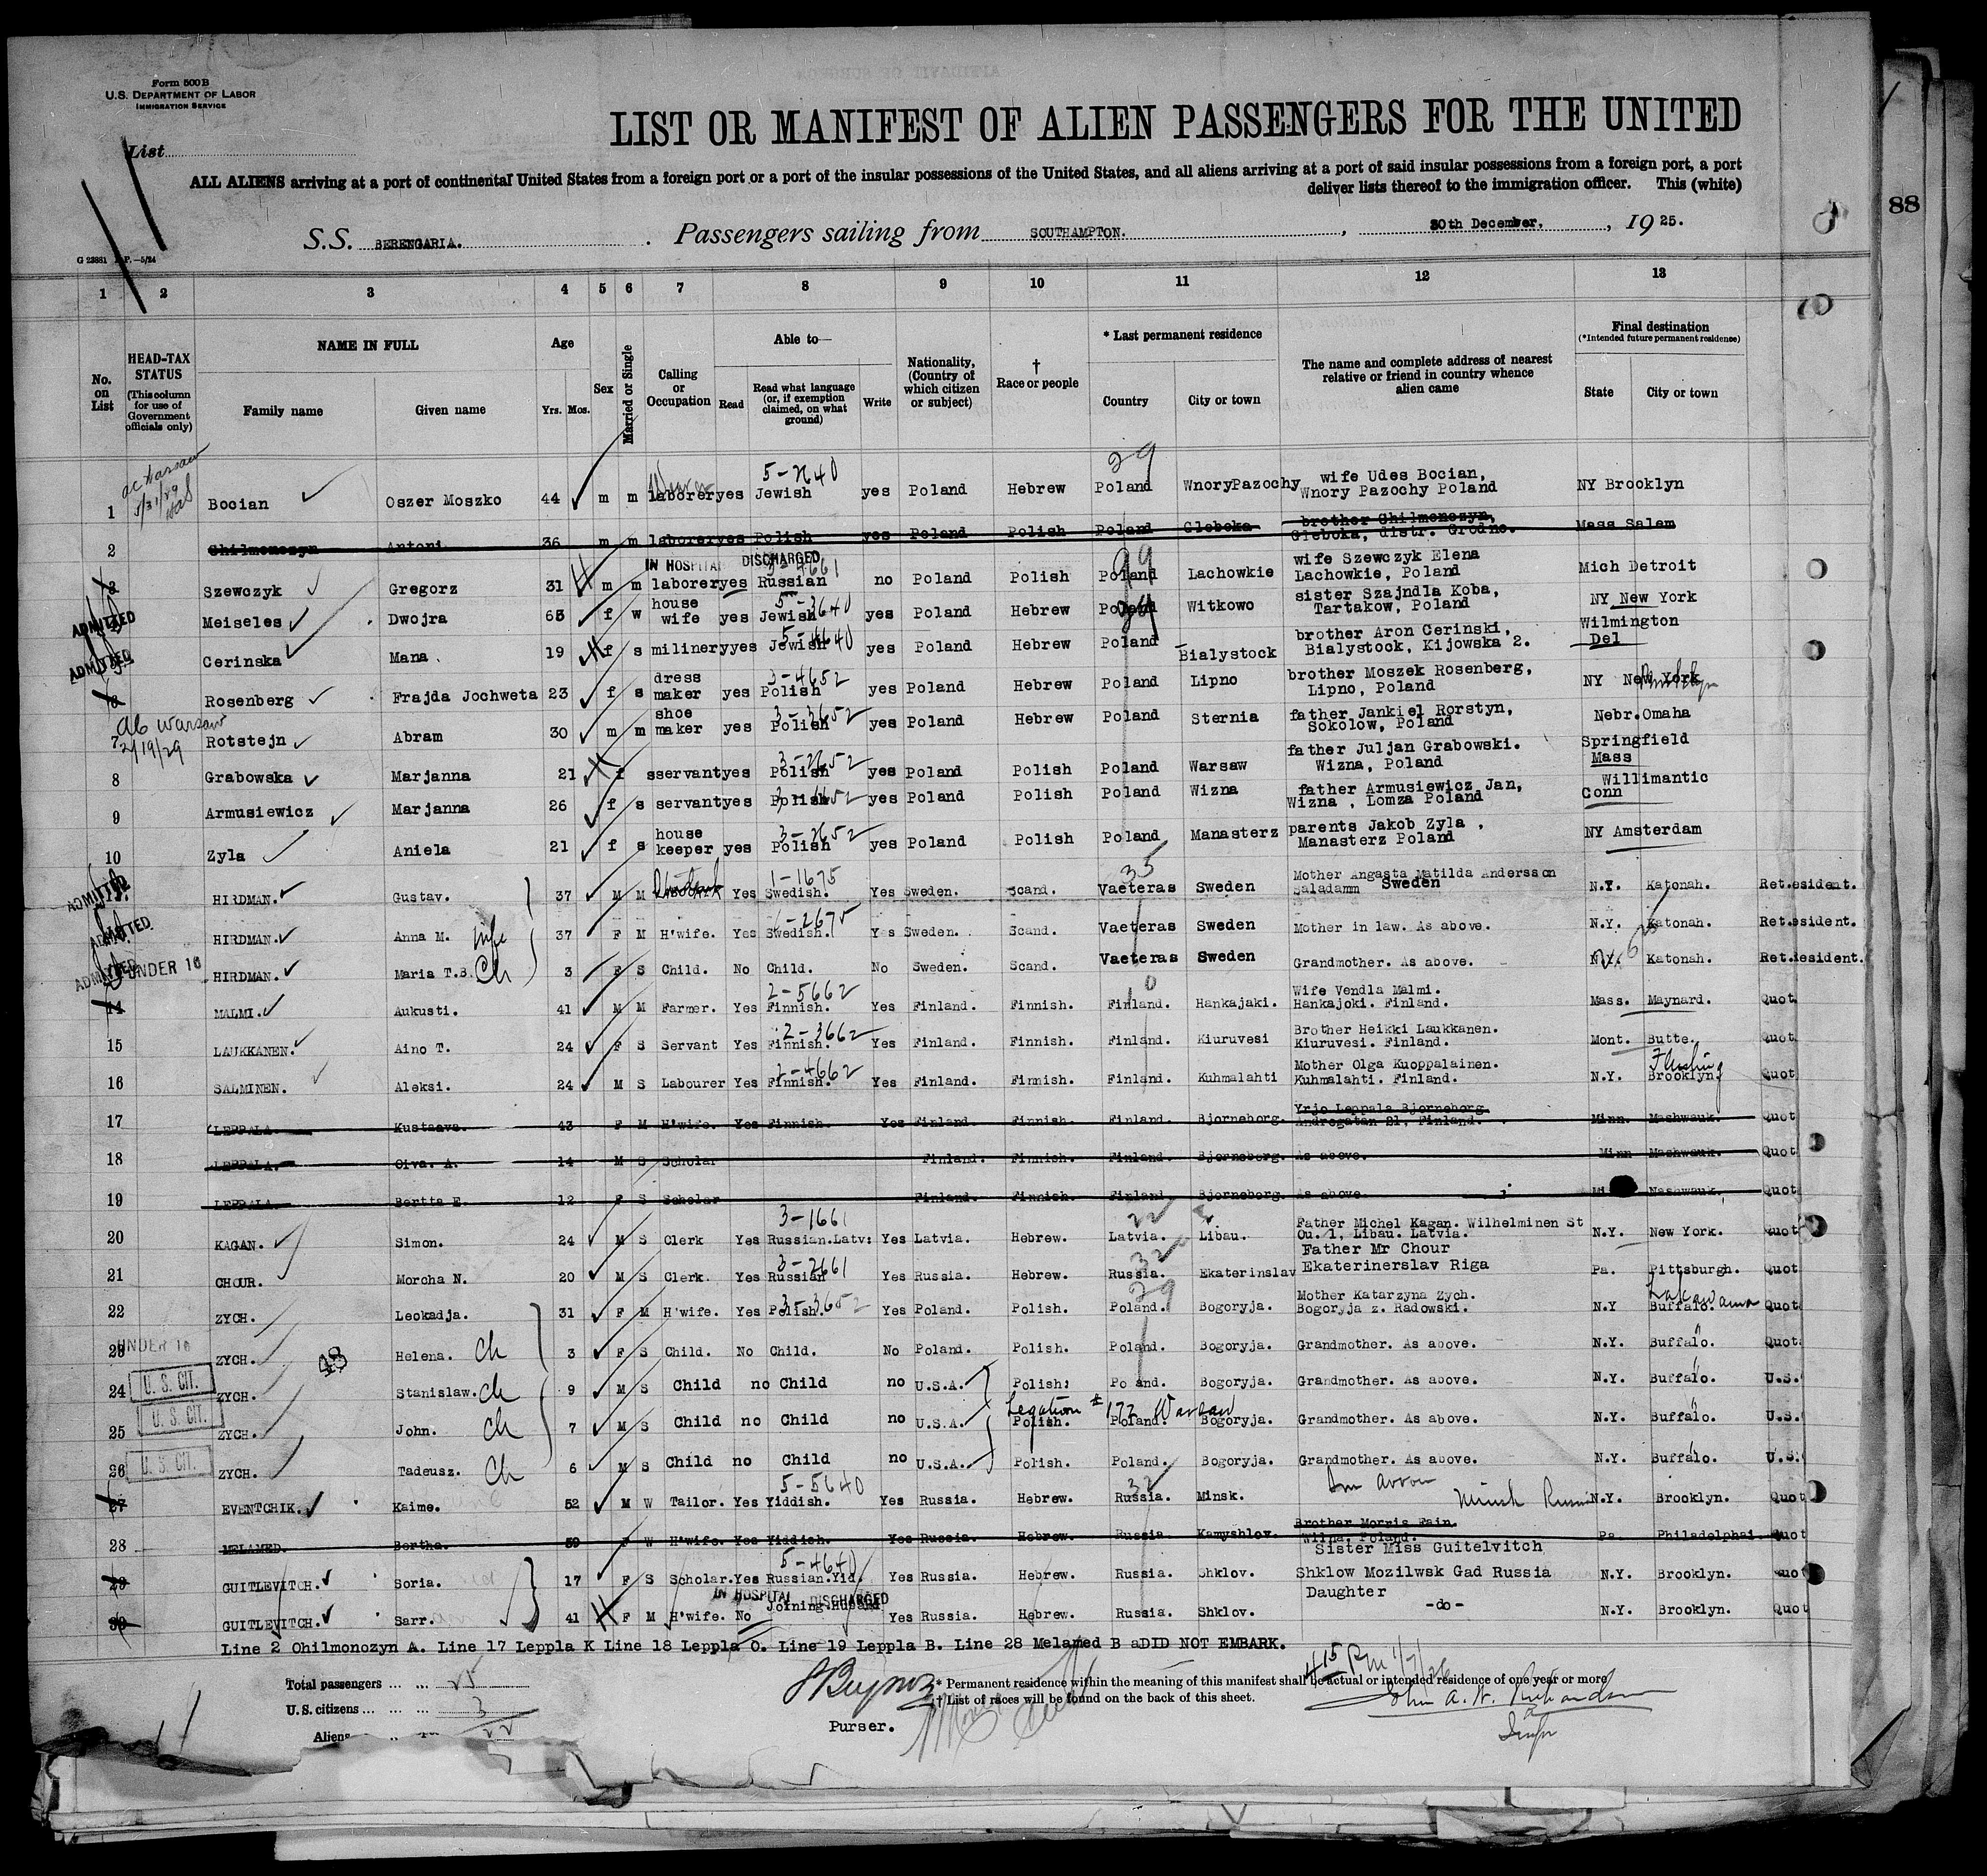 Form 500 B
U.S. DEPARTMENT OF LABOR
IMMIGRATION SERVICE
List
LIST OR MANIFEST OF ALIEN PASSENGERS FOR THE UNITED
ALL ALIENS arriving at a port of continental United States from a foreign port or a port of the insular possessions of the United States, and all aliens arriving at a port of said insular possessions from a foreign port, a port
deliver lists thereof to the immigration officer. This (white)
88
S.S. BERENGARIA. Passengers sailing from SOUTHAMPTON. , 30th December, , 19 25.
1 2 3 4 5 6 7 8 9 10 11 12 13
No. on List
HEAD-TAX STATUS (This column for use of Government officials only)
NAME IN FULL Family name Given name
Age Yrs. Mos.
Sex
Married or Single
Calling or Occupation
Able to— Read Read what language (or, if exemption claimed, on what ground) Write
Nationality, (Country of which citizen or subject)
† Race or people
* Last permanent residence Country City or town
The name and complete address of nearest relative or friend in country whence alien came
Final destination (*Intended future permanent residence) State City or town
29
5-2640
1 Bocian Oszer Moszko 44 m m laborer yes Jewish yes Poland Hebrew Poland WnoryPazochy wife Udes Bocian, Wnory Pazochy Poland NY Brooklyn
2 Chilmonczyn Antoni 36 m m laborer yes Polish yes Poland Polish Poland Gleboka brother Chilmonczyn, Gleboka, distr. Grodno. Mass Salem
IN HOSPITAL DISCHARGED
3 Szewczyk Gregorz 31 m m laborer yes Russian no Poland Polish Poland Lachowkie wife Szewczyk Elena Lachowkie, Poland Mich Detroit
ADMITTED Meiseles Dwojra 65 f w house wife yes Jewish 5-3640 yes Poland Hebrew Poland Witkowo sister Szajndla Koba, Tartakow, Poland NY New York
ADMITTED Cerinska Mana 19 f s milinery yes Jewish yes Poland Hebrew Poland Bialystock brother Aron Cerinski, Bialystock, Kijowska 2. Wilmington Del
6 Rosenberg Frajda Jochweta 23 f s dress maker yes Polish 3-4652 yes Poland Hebrew Poland Lipno brother Moszek Rosenberg, Lipno, Poland NY New York
ab Warsaw 2/19/29
7 Rotstejn Abram 30 m m shoe maker yes Polish 3-3652 yes Poland Hebrew Poland Sternia father Jankiel Rorstyn, Sokolow, Poland Nebr. Omaha
8 Grabowska Marjanna 21 f s servant yes Polish 3-2652 yes Poland Polish Poland Warsaw father Juljan Grabowski. Wizna, Poland Springfield Mass
9 Armusiewicz Marjanna 26 f s servant yes Polish yes Poland Polish Poland Wizna father Armusiewicz Jan, Wizna , Lomza Poland Willimantic Conn
10 Zyla Aniela 21 f s house keeper yes Polish 3-2652 yes Poland Polish Poland Manasterz parents Jakob Zyla , Manasterz Poland NY Amsterdam
35
1-1675
ADMITTED HIRDMAN. Gustav. 37 M M Yes Swedish. Yes Sweden. Scand. Vaeteras Sweden Mother Angasta Matilda Andersson Saladamm Sweden N.Y. Katonah. Ret.esident.
ADMITTED. HIRDMAN. Anna M. wife 37 F M H'wife. Yes Swedish. Yes Sweden. Scand. Vaeteras Sweden Mother in law. As above. N.Y. Katonah. Ret.esident.
ADMITTED UNDER 16 HIRDMAN. Maria T.B. Ch 3 F S Child. No Child. No Sweden. Scand. Vaeteras Sweden Grandmother. As above. Katonah. Ret.Resident.
2-5662
14 MALMI. Aukusti. 41 M M Farmer. Yes Finnish. Yes Finland. Finnish. Finland. Hankajaki. Wife Vendla Malmi. Hankajoki. Finland. Mass. Maynard. Quot
2-3662
15 LAUKKANEN. Aino T. 24 F S Servant Yes Finnish. Yes Finland. Finnish. Finland. Kiuruvesi Brother Heikki Laukkanen. Kiuruvesi. Finland. Mont. Butte. Quot
2-4662
16 SALMINEN. Aleksi. 24 M S Labourer Yes Finnish. Yes Finland. Finnish. Finland. Kuhmalahti Mother Olga Kuoppalainen. Kuhmalahti. Finland. N.Y. Flushing Brooklyn Quot
17 LEPPALA. Kustaava. 43 F M H'wife. Yes Finnish. Yes Finland. Finnish. Finland. Bjorneborg. Yrjo Leppala Bjorneborg Andregatan 21, Finland. Minn. Mashwauk. Quot
18 LEPPALA. Oiva. A. 14 M S Scholar Finland. Finnish. Finland. Bjorneborg. As above. Minn Mashwauk. Quot
19 LEPPALA. Bertta E. 12 F S Scholar Finland. Finnish. Finland. Bjorneborg. As above. Mi Nashwauk. Quot
3-1661 22
20 KAGAN. Simon. 24 M S Clerk Yes Russian.Latv: Yes Latvia. Hebrew. Latvia. Libau. Father Michel Kagan. Wilhelminen St Ou. 1, Libau. Latvia. N.Y. New York. Quot
3-2661 32
21 CHOUR. Morcha N. 20 M S Clerk. Yes Russian Yes Russia. Hebrew. Russia. Ekaterinslav Father Mr Chour Ekaterinerslav Riga Pa. Pittsburgh. Quot
3-3652 29
22 ZYCH. Leokadja. 31 F M H'wife. Yes Polish. Yes Poland. Polish. Poland. Bogoryja. Mother Katarzyna Zych. Bogoryja z. Radowski. N.Y Buffalo. Quot
23 UNDER 16 ZYCH. Helena. Ch 3 F S Child. No Child. No Poland. Polish. Poland. Bogoryja. Grandmother. As above. N.Y. Buffalo. Quot
24 U. S. CIT. ZYCH. Stanislaw. Ch 9 M S Child no Child no U.S.A. Polish: Poland. Bogoryja. Grandmother. As above. N.Y. Buffalo. U.S.
Legation # 172 Warsaw
25 U. S. CIT. ZYCH. John. Ch 7 M S Child no Child no U.S.A. Polish. Poland. Bogoryja. Grandmother. As above. N.Y. Buffalo. U.S.
26 U. S. CIT. ZYCH. Tadeusz. Ch 6 M S Child no Child no U.S.A. Polish. Poland. Bogoryja. Grandmother. As above. N.Y. Buffalo. U.S.
5-5640 32
27 EVENTCHIK. Kaime. 52 M W Tailor. Yes Yiddish. Yes Russia. Hebrew. Russia. Minsk. Minsk N.Y. Brooklyn. Quot
28 MELAMED. Bertha. 59 F W H'wife Yes Yiddish. Yes Russia. Hebrew. Russia. Kamyshlov. Brother Morris Fain. Wilna, Poland. Pa. Philadelphai. Quot
5-4640
29 GUITLEVITCH. Soria. 17 F S Scholar. Yes Russian.Yid. Yes Russia. Hebrew. Russia. Shklov. Sister Miss Guitelvitch Shklow Mozilwsk Gad Russia N.Y. Brooklyn. quot
IN HOSPITAL DISCHARGED
30 GUITLEVITCH. Sarr. 41 F M H'wife. No Joining.Husband Yes Russia. Hebrew. Russia. Shklov. Daughter -do- N.Y. Brooklyn. Quot
Line 2 Ohilmonozyn A. Line 17 Leppla K Line 18 Leppla O. Line 19 Leppla B. Line 28 Melamed B aDID NOT EMBARK.
Total passengers ... ... 25
U. S. citizens ... ... ... 3
Aliens 22
Purser.
* Permanent residence within the meaning of this manifest shall be actual or intended residence of one year or more
† List of races will be found on the back of this sheet.
415 PM 1/7/26